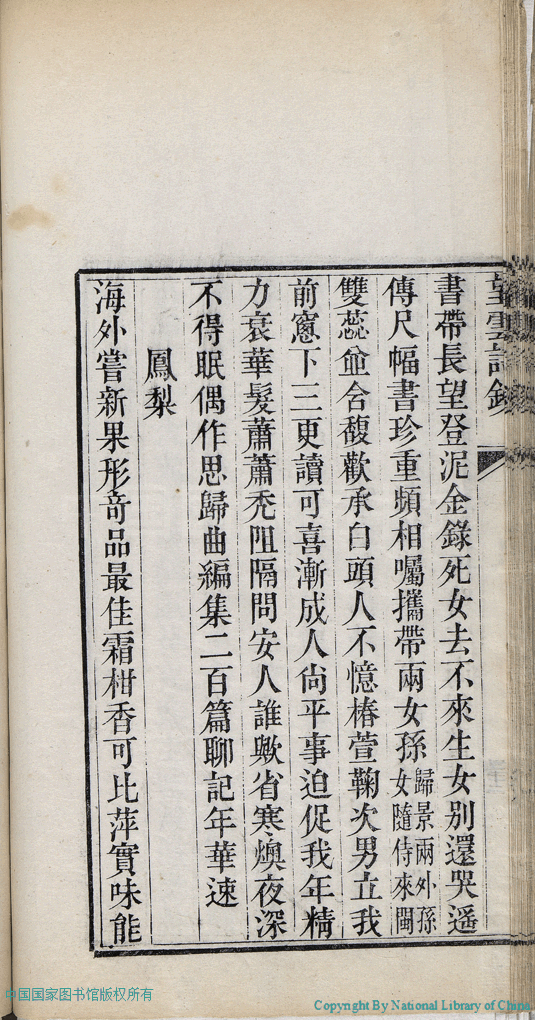 書帶長望登泥金錄死女去不來生女別還哭遙
傳尺幅書珍重頻相囑攜帶兩女孫歸景兩外孫女隨侍來閩
雙蕊並含馥歡承白頭人不憶椿萱鞠次男立我
前窻下三更讀可喜漸成人尚平事迫促我年精
力衰華髮蕭蕭禿阻隔問安人誰歟省寒燠夜深
不得眠偶作思歸曲編集二百篇聊記年華速
鳳梨
海外嘗新果形奇品最佳霜柑香可比萍實味能
中国国家图书馆版权所有
Copyright By National Library of China.